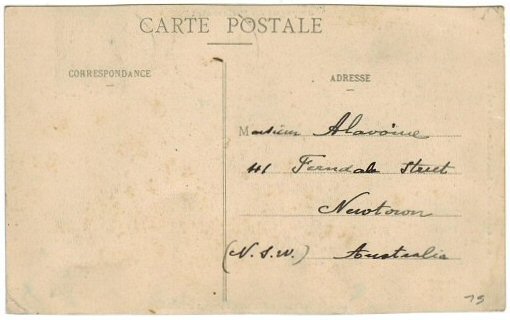 CARTE POSTALE
CORRESPONDANCE
ADRESSE
Monsieur Alavoine
141 Ferndale Street
Newtown
(N.S.W.) Australia
75